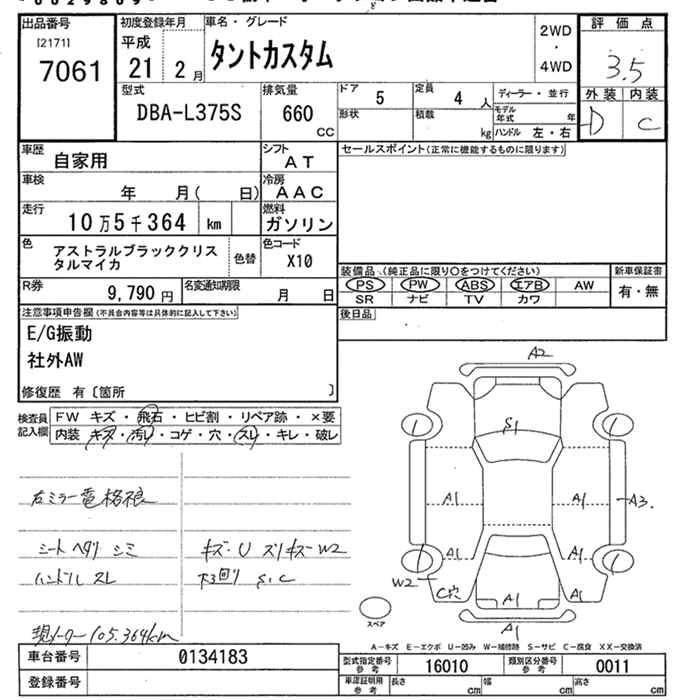 出品番号 初度登録年月 車名・グレード 評価点
[2171] 平成 2WD
7061 21 2月 タントカスタム ・ 3.5
4WD
型式 排気量 ドア 5 定員 4人 ディーラー・並行 外装 内装
DBA-L375S 660 CC 形状 積載 kg モデル年式 年 D C
ハンドル 左・右
車歴 自家用 シフト AT セールスポイント(正常に機能するものに限ります)
車検 年 月( 日) 冷房 AAC
走行 10万5千364 km 燃料 ガソリン
色 アストラルブラッククリス 色替 色コード
タルマイカ X10
装備品(純正品に限り○をつけてください) 新車保証書
R券 9,790円 名変通知期限 月 日 PS PW ABS エアB AW 有・無
SR ナビ TV カワ
注意事項申告欄(不具合内容等は具体的に記入して下さい) 後日品
E/G振動
社外AW
修復歴 有〔箇所 〕
検査員 FW キズ・飛石・ヒビ割・リペア跡・×要
記入欄 内装 キズ・汚レ・コゲ・穴・スレ・キレ・破レ
A2
S1
1 1
右ミラー電格不良
A1 A1 A3
シート ヘタリ シミ キズ・U スリキズ W2
A1 A1
1 1
ハンドル スレ 下回り S,C
W2 C穴 A1 A1
スペア
A1
現メーター 105,364km
A-キズ E-エクボ U-凹み W-補修跡 S-サビ C-腐食 XX-交換済
車台番号 0134183 型式指定番号参考 16010 類別区分番号参考 0011
登録番号 車庫証明用参考 長さ cm 幅 cm 高さ cm